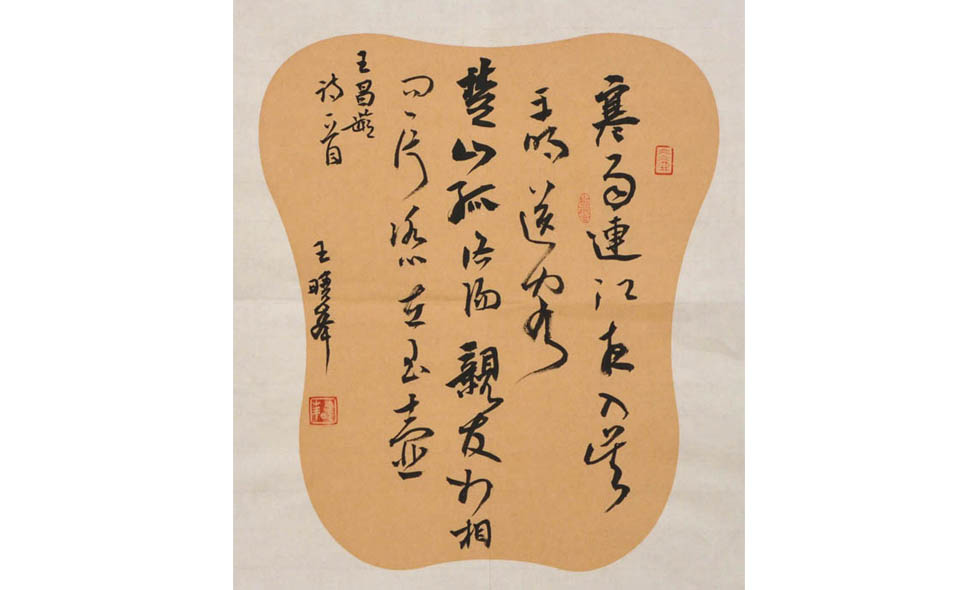 寒雨連江夜入吴
平明送客
楚山孤洛陽親友如相
問一片冰心在玉壺
王昌齡
詩一首
王峯